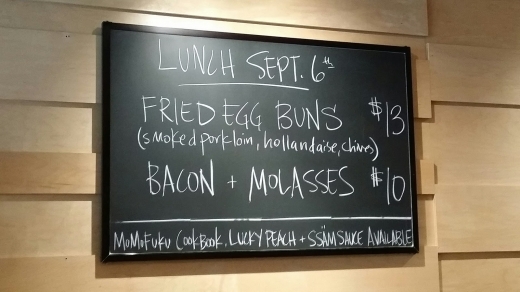 LUNCH SEPT. 6th
FRIED EGG BUNS $13
(smoked pork loin, hollandaise, chives)
BACON + MOLASSES $10
MOMOFUKU COOKBOOK, LUCKY PEACH + SSÄM SAUCE AVAILABLE